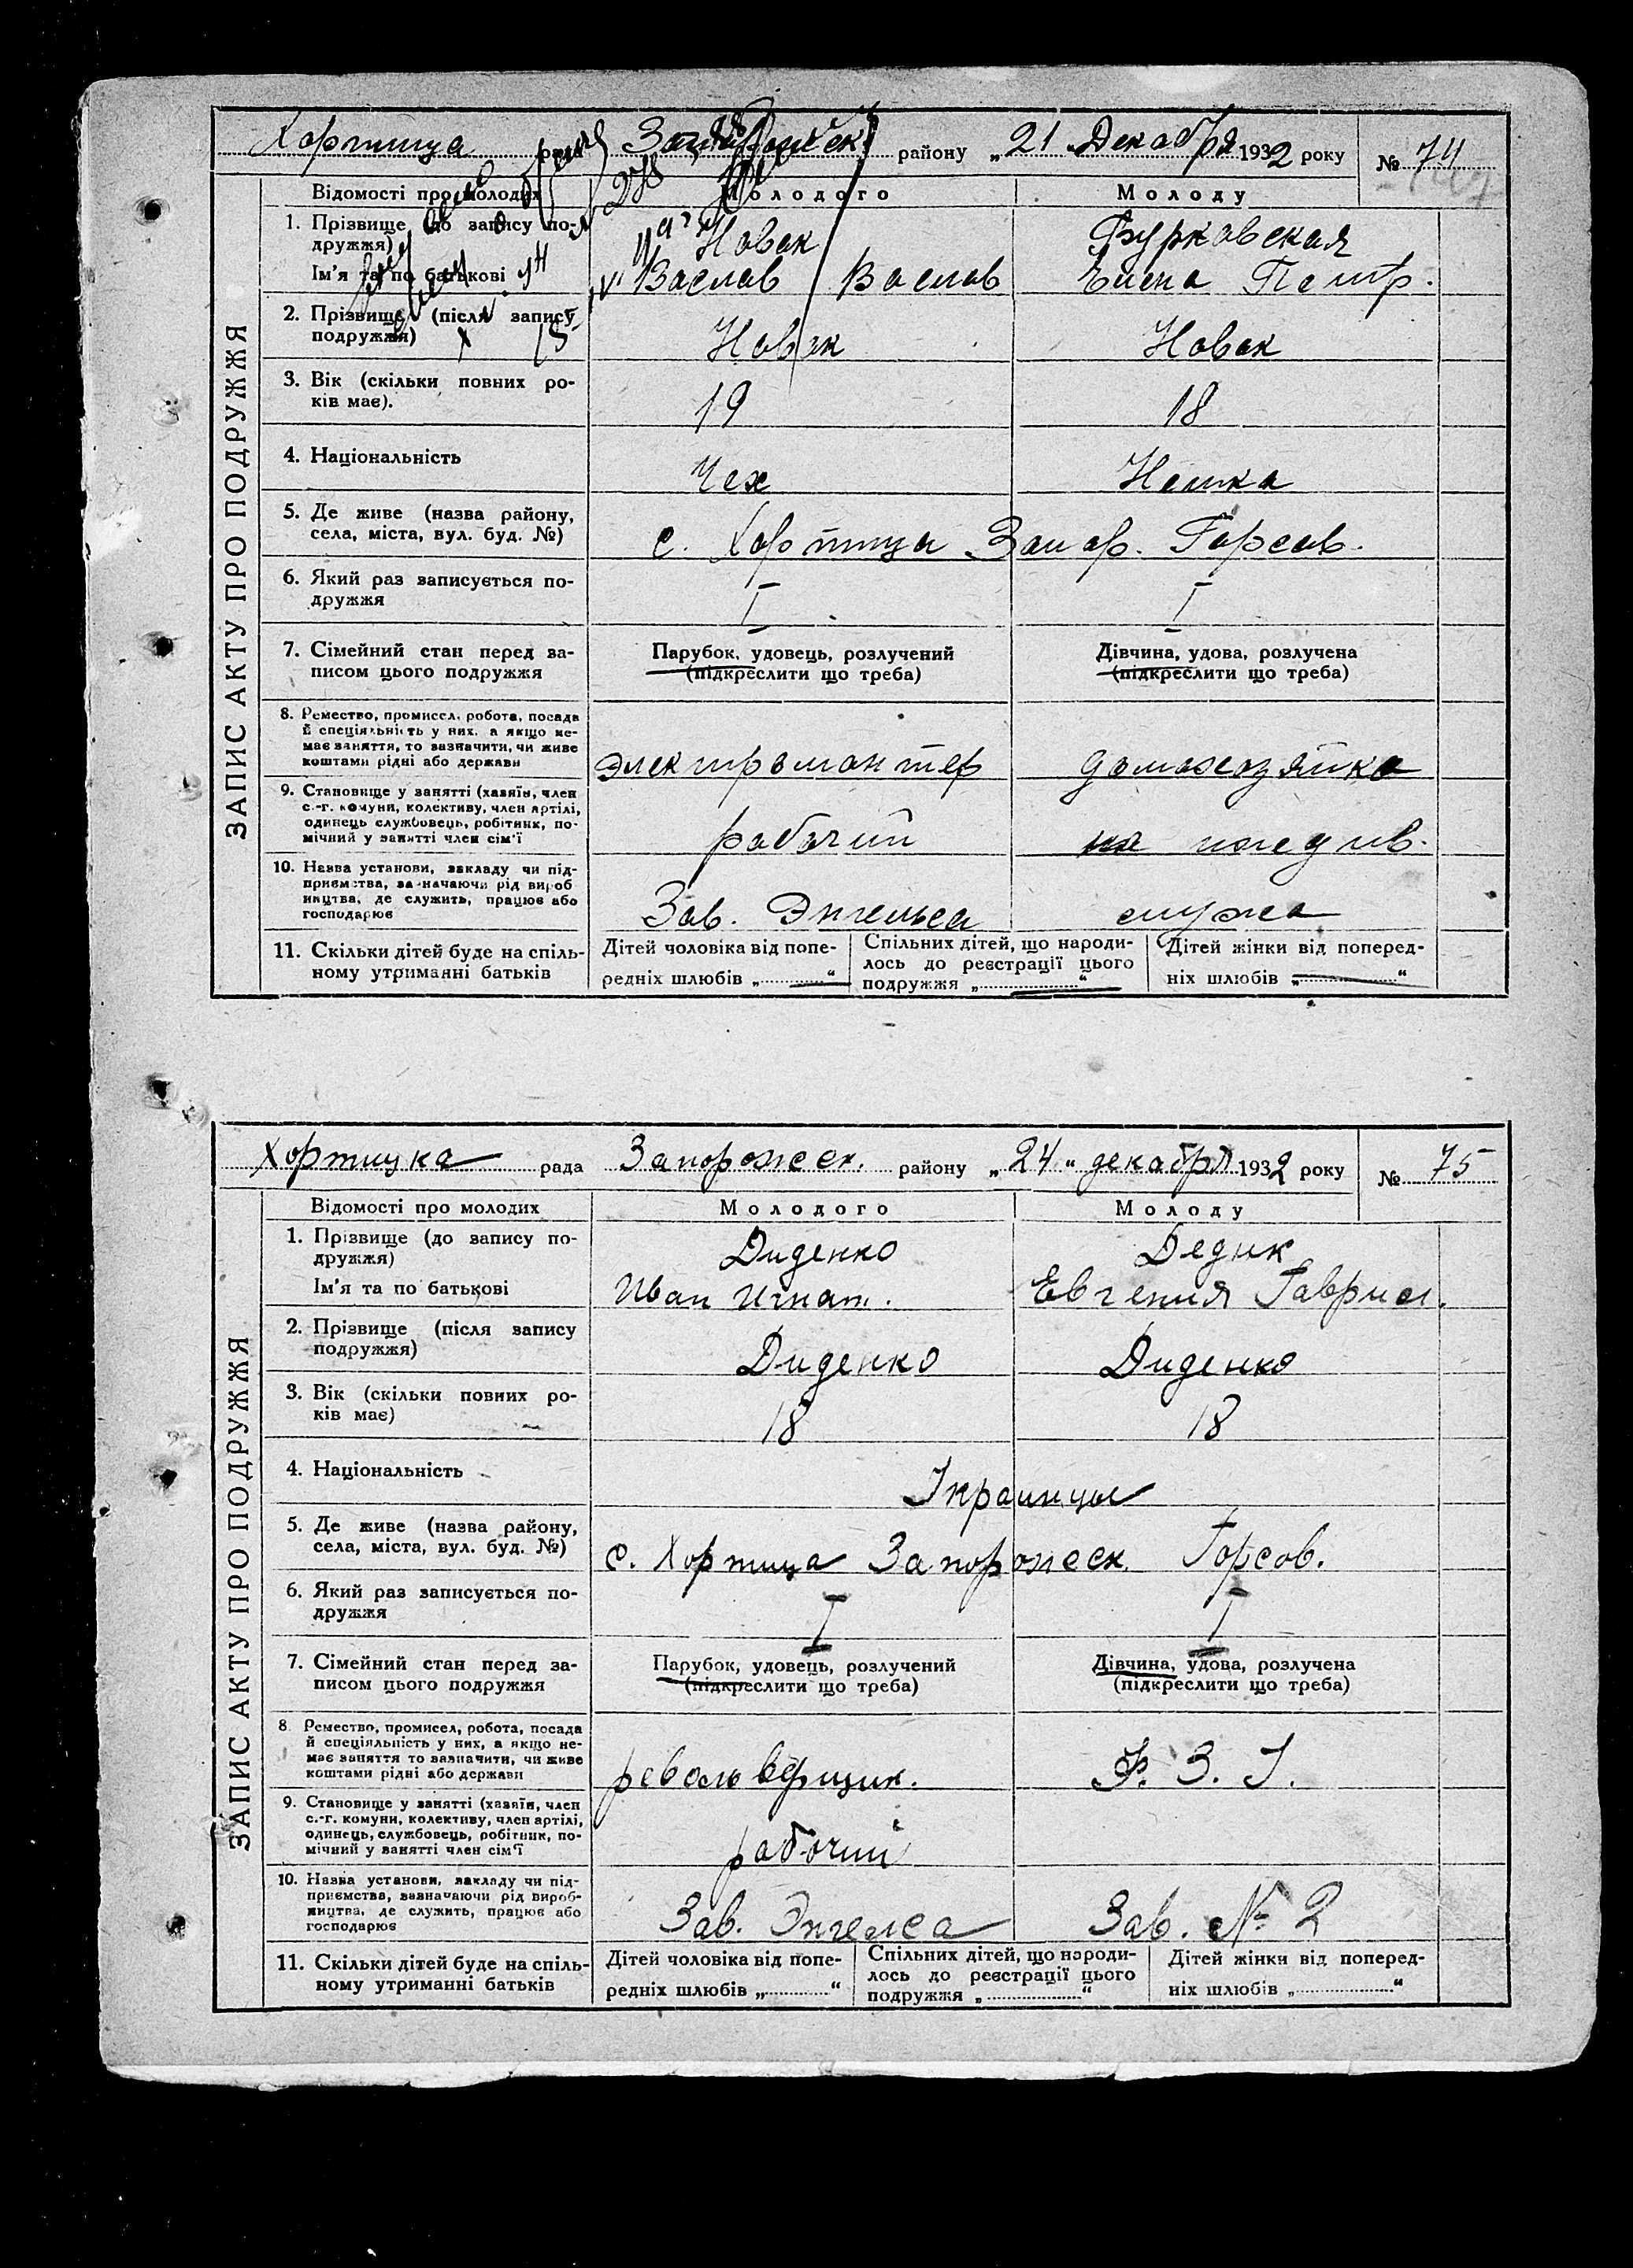 Хортица рада Запорожск. району „21 Декабря 1932 року № 74
Відомості про молодих Молодого Молоду
1. Прізвище (до запису по- Новак Бурковская
дружжя)
Ім'я та по батькові Васлав Васлав Елена Петр.
2. Прізвище (після запису
подружжя) Новак Новак
3. Вік (скільки повних ро-
ків має). 19 18
4. Національність Чех Немка
5. Де живе (назва району,
села, міста, вул. буд. №) с. Хортица Запор. Горсов.
6. Який раз записується по-
дружжя I I
7. Сімейний стан перед за- Парубок, удовець, розлучений Дівчина, удова, розлучена
писом цього подружжя (підкреслити що треба) (підкреслити що треба)
8. Ремество, промисел, робота, посада
й спеціяльність у них, а якщо не-
має заняття, то зазначити, чи живе
коштами рідні або держави электромонтер домохозяйка
9. Становище у занятті (хазяїн, член
с.-г. комуни, колективу, член артілі,
одинець службовець, робітник, по-
мічний у занятті член сім'ї рабочий на иждив.
10. Назва установи, закладу чи під-
приємства, зазначаючи рід вироб
ництва, де служить, працює або
господарює Зав. Энгельса мужа
11. Скільки дітей буде на спіль- Дітей чоловіка від попе- Спільних дітей, що народи- Дітей жінки від поперед-
ному утриманні батьків редніх шлюбів „ “ лось до реєстрації цього ніх шлюбів „ “
подружжя „ “
ЗАПИС АКТУ ПРО ПОДРУЖЖЯ
Хортицка рада Запорожск. району „24“ декабря 1932 року № 75
Відомості про молодих Молодого Молоду
1. Прізвище (до запису по- Диденко Дедик
дружжя)
Ім'я та по батькові Иван Игнат. Евгения Гаврил.
2. Прізвище (після запису
подружжя) Диденко Диденко
3. Вік (скільки повних ро-
ків має) 18 18
4. Національність Украинцы
5. Де живе (назва району,
села, міста, вул. буд. №) с. Хортица Запорожск. Горсов.
6. Який раз записується по-
дружжя I I
7. Сімейний стан перед за- Парубок, удовець, розлучений Дівчина, удова, розлучена
писом цього подружжя (підкреслити що треба) (підкреслити що треба)
8. Ремество, промисел, робота, посада
й спеціяльність у них, а якщо не-
має заняття то зазначити, чи живе
коштами рідні або держави револьверщик. Ф. З. У.
9. Становище у занятті (хазяїн, член
с.-г. комуни, колективу, член артілі,
одинець, службовець, робітник, по-
мічний у занятті член сім'ї рабочий
10. Назва установи, закладу чи під-
приємства, зазначаючи рід вироб-
ництва, де служить, працює або
господарює Зав. Энгелса Зав. № 2
11. Скільки дітей буде на спіль- Дітей чоловіка від попе- Спільних дітей, що народи- Дітей жінки від поперед-
ному утриманні батьків редніх шлюбів „ “ лось до реєстрації цього ніх шлюбів „ “
подружжя „ “
ЗАПИС АКТУ ПРО ПОДРУЖЖЯ